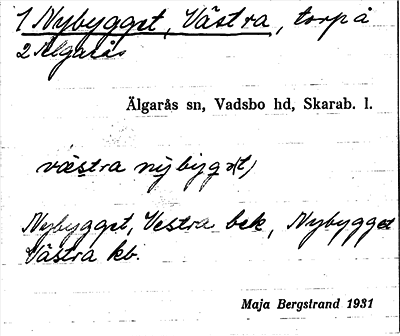 1 Nybygget, Västra, torp å
2 Älgarås
Älgarås sn, Vadsbo hd, Skarab. l.
västra nybygə(t)
Nybygget, Vestra bek, Nybygget
Västra kb.
Maja Bergstrand 1931